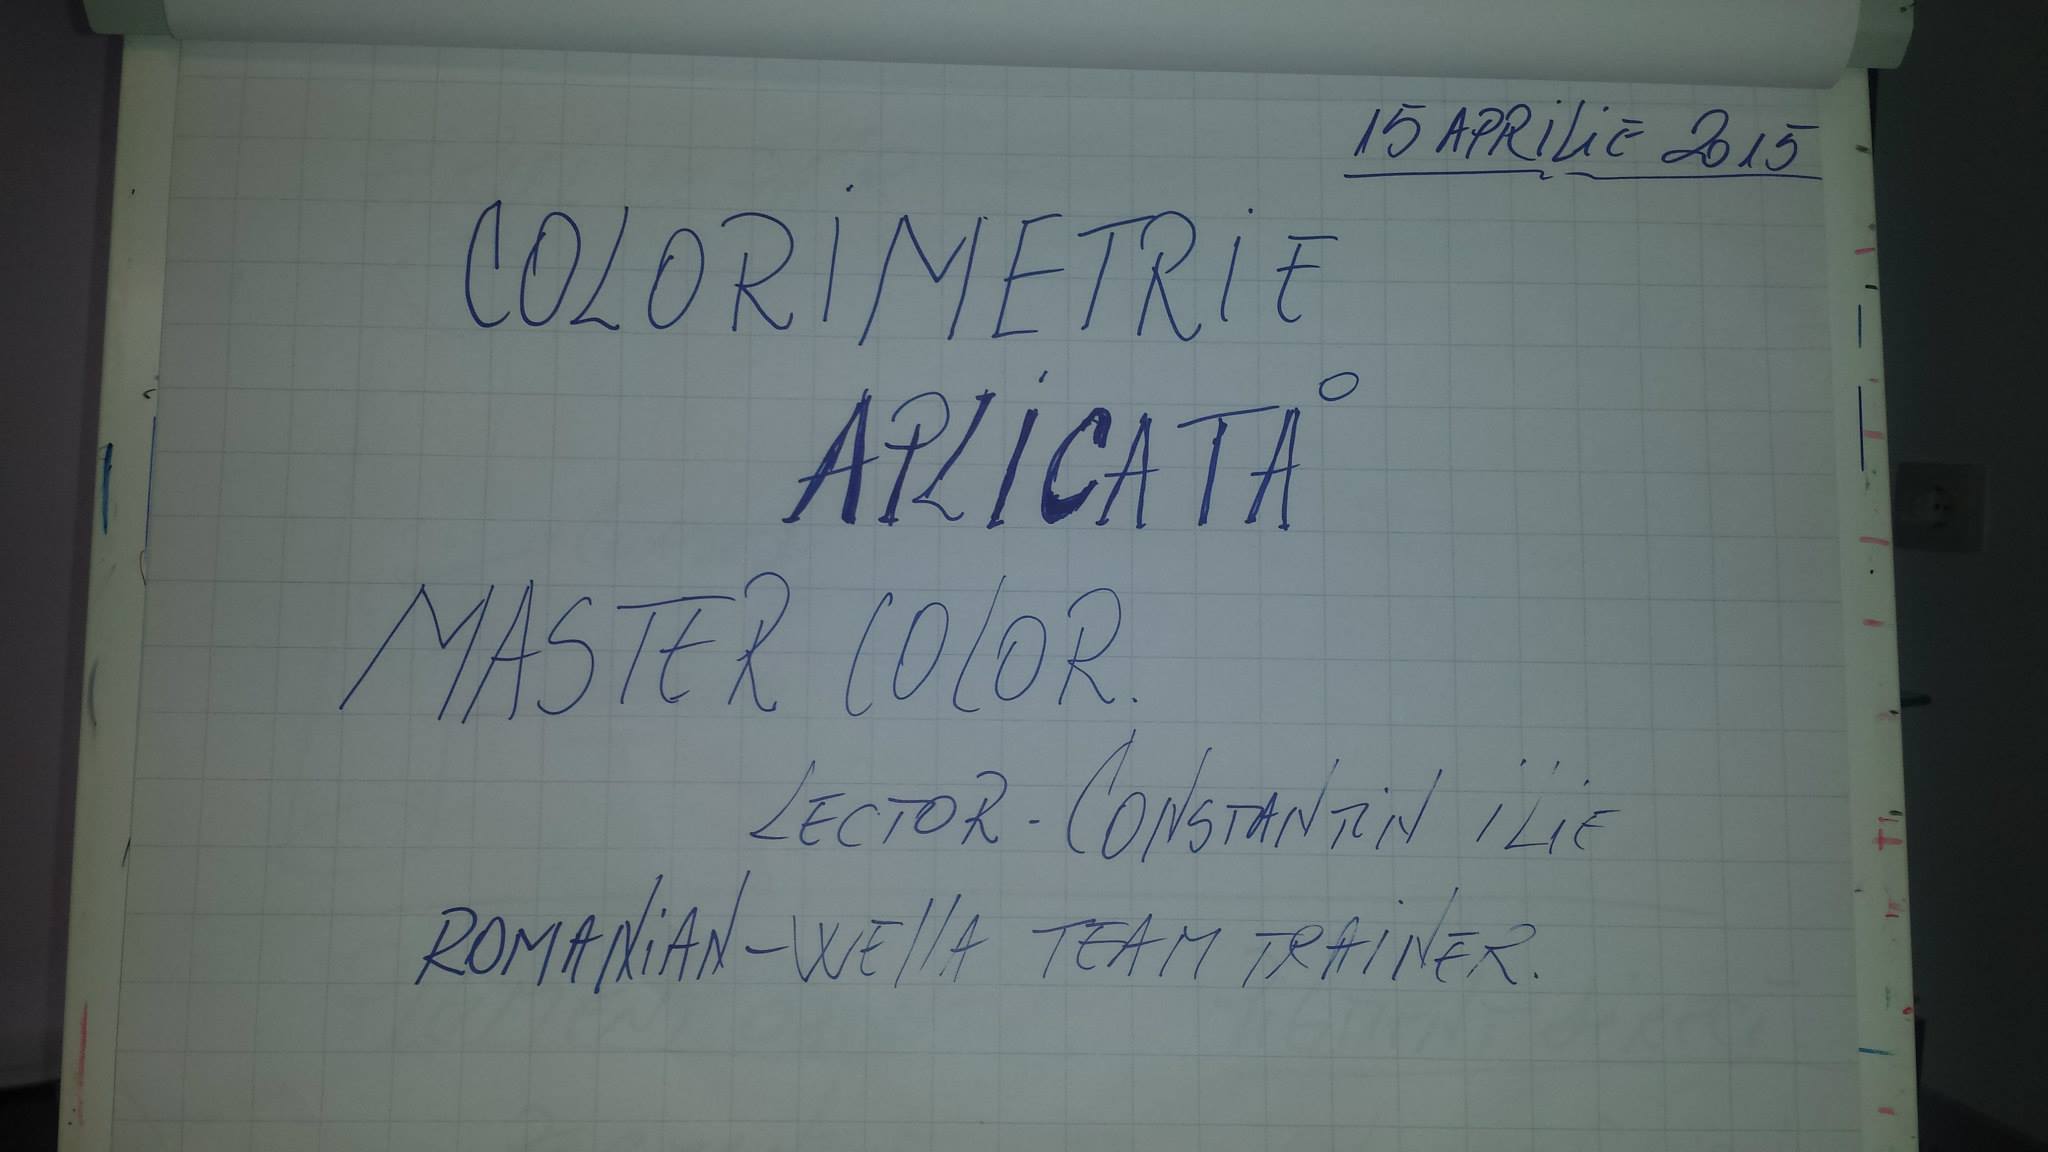 15 APRILIE 2015
COLORIMETRIE
APLICATĂ
MASTER COLOR.
LECTOR - CONSTANTIN ILIE
ROMANIAN - WELLA TEAM TRAINER.